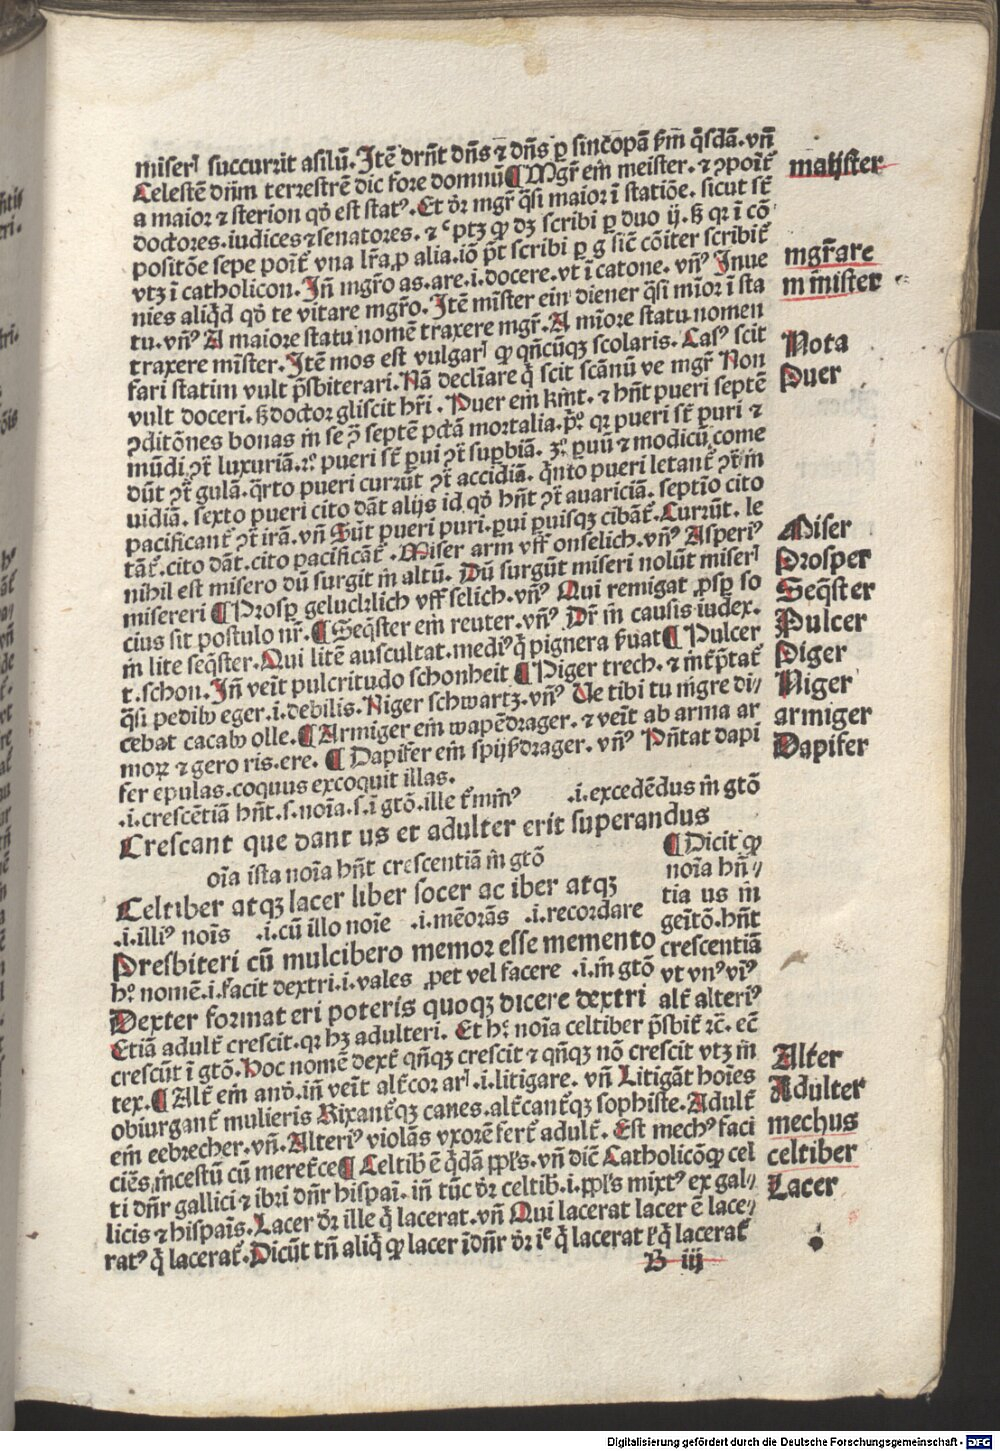 miserꝉ succurrit asilū. Itē dr̄nt dn̄s ⁊ dn̄s ꝑ sincopā ẜm q̄sdā. vn̄
Celestē dn̄m terrestrē dic fore domnū ¶ Mgr̄ em̄ meister. ⁊ ꝯpoīt̄
matister
a maior ⁊ sterion qd̓ est stat⁹. Et dr̄ mgr̄ q̄si maior ī statiōe. sicut st̄
doctores. iudices ⁊ senatores. ⁊ scribi ꝑ duo ij. qr ī cō
positōe sepe poīt̄ vna lr̄a ꝓ alia. iō pt̄ scribi ꝑ g sic̄ cōiter scribit̄
vtꝫ ī catholicon. In̄ mgr̄o as. are. i. docere. vt ī catone. vn̄⁹ Inue
mgr̄are
nies aliqd̓ qd̓ te vitare mgr̄o. Itē mīster ein diener q̄si mīor ī sta
m mīster
tu. vn̄⁹ A maiore statu nomē traxere mgr̄. A mīore statu nomen
traxere mīster. Itē mos est vulgarꝉ ꝙ qn̄cūqꝫ scolaris. Cas⁹ scit
Nota
fari statim vult p̄sbiterari. Nā declīare q̄ scit scānū ve mgr̄ Non
Puer
vult doceri. doctor gliscit hr̄i. Puer em̄ kīnt. ⁊ hn̄t pueri septē
ꝯditōnes bonas septē pctā mortalia. qꝛ pueri st̄ puri ⁊
mūdi luxuriā. pueri st̄ ꝑui suꝑbiā. ꝑuū ⁊ modicū come
dūt gulā. q̄rto pueri currūt accidiā. q̄nto pueri letant̄
uidiā. sexto pueri cito dāt alijs id qd̓ hn̄t auariciā. septīo cito
pacificant̄ irā. vn̄ Sūt pueri puri. ꝑui ꝑuisqꝫ cibāt̄. Currūt. le
tāt̄. cito dāt. cito pacificāt̄. Miser arm vn̄ onselich. vn̄⁹ Asperi⁹
Miser
nihil est misero dū surgit in̄ altū. Dū surgūt miseri nolūt miserꝉ
Prosper
misereri ¶ Prosꝑ gelucklich vn̄ selich. vn̄⁹ Qui remigat ꝓsꝑ so
Seq̄ster
cius sit postulo nr̄. ¶ Seq̄ster em̄ reuter. vn̄⁹ Dr̄ in̄ causis iudex.
Pulcer
in̄ lite seq̄ster. Qui litē auscultat. medi⁹ q̄ pignera ẜuat ¶ Pulcer
Piger
t. schon. In̄ veīt pulcritudo schonheit ¶ Piger trech. ⁊ int̄p̄tat̄
Niger
q̄si pedibꝰ eger. i. debilis. Niger schwartz. vn̄⁹ Ve tibi tu nigre di⸗
armiger
cebat cacabꝰ olle. ¶ Armiger em̄ wapēdrager. ⁊ veīt ab arma ar
Dapifer
moꝝ ⁊ gero ris. ere. ¶ Dapifer em̄ spijßdrager. vn̄⁹ Pn̄tat dapi
fer epulas. coquus excoquit illas.
.i. crescētiā hn̄t. s. noīa. s. ī gtō. ille t̄min⁹ .i. excedēdus in̄ gtō
Crescant que dant us et adulter erit superandus
oīa ista noīa hn̄t crescentiā in̄ gtō
Celtiber atqꝫ lacer liber socer ac iber atqꝫ
.i. illi⁹ noīs .i. cū illo noīe .i. memorās .i. recordare
Presbiteri cū mulcibero memor esse memento
h̓ nomē. i. facit dextri. i. vales ꝓpet vel facere .i. in̄ gtō
Dexter format eri poteris quoqꝫ dicere dextri
¶ Dicit ꝙ
noīa hn̄⸗
tia us in̄
geītō. hn̄t
crescentiā
vt vn⁹ vi⁹
alt̄ alteri⁹
Etiā adult̄ crescit. qꝛ hꝫ adulteri. Et h̓ noīa celtiber p̄sbit̄ ⁊c̄. ec̄
crescūt ī gtō. Hoc nomē dext̄ qn̄qꝫ crescit ⁊ qn̄qꝫ nō crescit vtꝫ in̄
Alter
tex. ¶ Alt̄ em̄ and̓. in̄ veīt alt̄cor arꝉ. i. litigare. vn̄ Litigāt hoīes
Adulter
obiurgant̄ mulieris Rixant̄qꝫ canes. alt̄cant̄qꝫ sophiste. Adult̄
mechus
em̄ eebrecher. vn̄. Alteri⁹ violās vxorē fert̄ adult̄. Est mech⁹ faci
celtiber
ciēs incestū cū meret̄ce ¶ Celtib̄ ē q̄dā ppl̄s. vn̄ dic̄ Catholicō ꝙ cel
ti dn̄r gallici ⁊ ibri dn̄r hispaī. in̄ tūc dr̄ celtib̄. i. ppl̄s mixt⁹ ex gal⸗
Lacer
licis ⁊ hispaīs. Lacer dr̄ ille q̄ lacerat. vn̄ Qui lacerat lacer ē lace⸗
rat⁹ q̄ lacerat̄. Dicūt tn̄ aliq̄ ꝙ lacer īdn̄r dr̄ q̄ lacerat q̄ lacerat̄
B iij
Digitalisierung gefördert durch die Deutsche Forschungsgemeinschaft - DFG